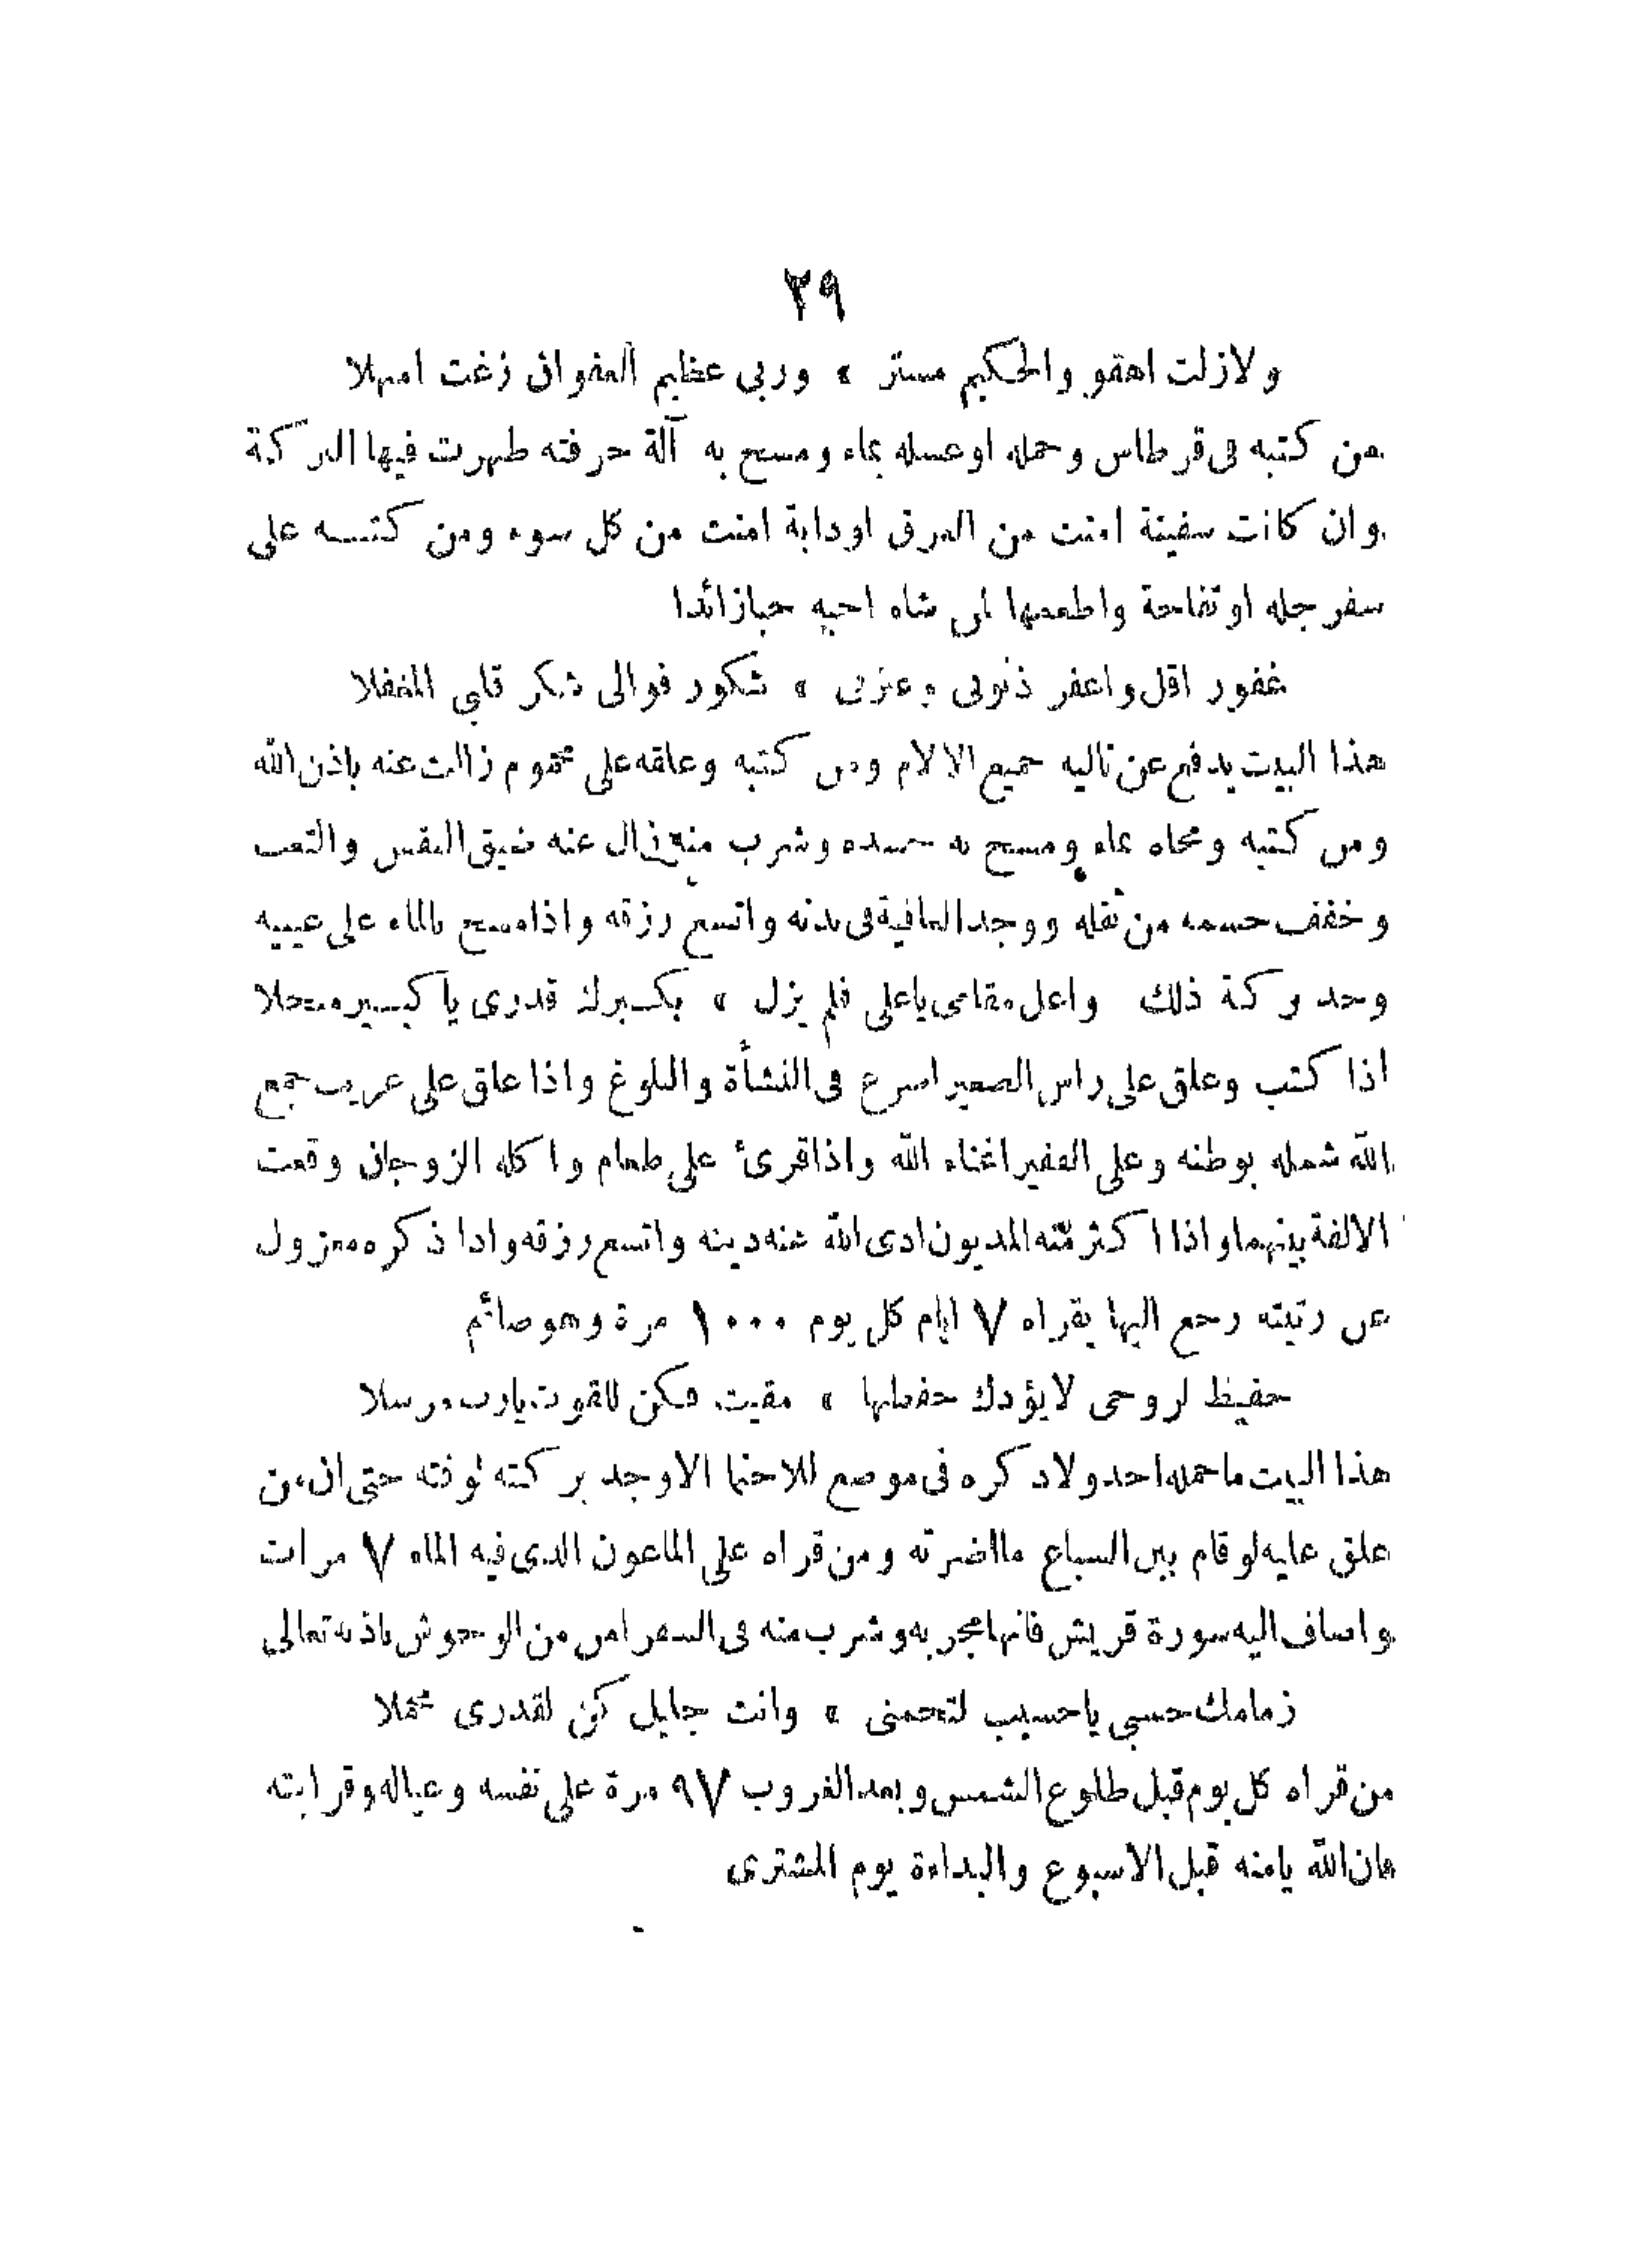 ٣٩
ولازلت اهفو والحكيم مستر * وربى عظيم العفو ان زغت امهلا
من كتبه فى قرطاس وحمله اوغسله بماء ومسح به آلة حرفته ظهرت فيها البركة
وان كانت سفينة امنت من الغرق اودابة امنت من كل سوء ومن كتبه على
سفرجله اوتفاحة واطعمها لمن شاء احبه حبا زائدا
غفور اقل واغفر ذنوبى وعزنى * شكور فوالى شكر قلبى المغفلا
هذا البيت يدفع عن تاليه جميع الالام ومن كتبه وعلقه على محموم زالت عنه باذن الله
ومن كتبه ومحاه بماء ومسح به جسده وشرب منه زال عنه ضيق النفس والتعب
وخفف جسمه من ثقله ووجد العافية فى بدنه واتسع رزقه واذا مسح بالماء على عينيه
وجد بركة ذلك واعل مقامى ياعلى فلم يزل * بكبرك قدرى يا كبير مبجلا
اذا كتب وعلق على راس الصغير اسرع فى النشأة والبلوغ واذا علق على غريب جمع
الله شمله بوطنه وعلى الفقير اغناه الله واذا قرئ على طعام واكله الزوجان وقعت
الالفة بينهما واذا اكثر منه المديون ادى الله عنه دينه واتسع رزقه واذا ذكره معزول
عن رتبته رجع اليها يقراه ٧ ايام كل يوم ١٠٠٠ مرة وهو صائم
حفيظ لروحى لايؤدك حفظها * مقيت فكن للقوت يارب مرسلا
هذا البيت ماحمله احد ولا ذكره فى موضع للاحتما الا وجد بركته لوقته حتى ان من
علق عليه لو قام بين السباع مااضرته ومن قراه على الماعون الذى فيه الماء ٧ مرات
واضاف اليه سورة قريش فانها مجربه وشرب منه فى السفر امن من الوحوش باذنه تعالى
زمامك حسبى ياحسيب لتحمنى * وانت جليل كن لقدرى مجملا
من قراه كل يوم قبل طلوع الشمس وبعد الغروب ٩٧ مرة على نفسه وعياله وقرابته
فان الله يامنه قبل الاسبوع والبداءة يوم المشترى